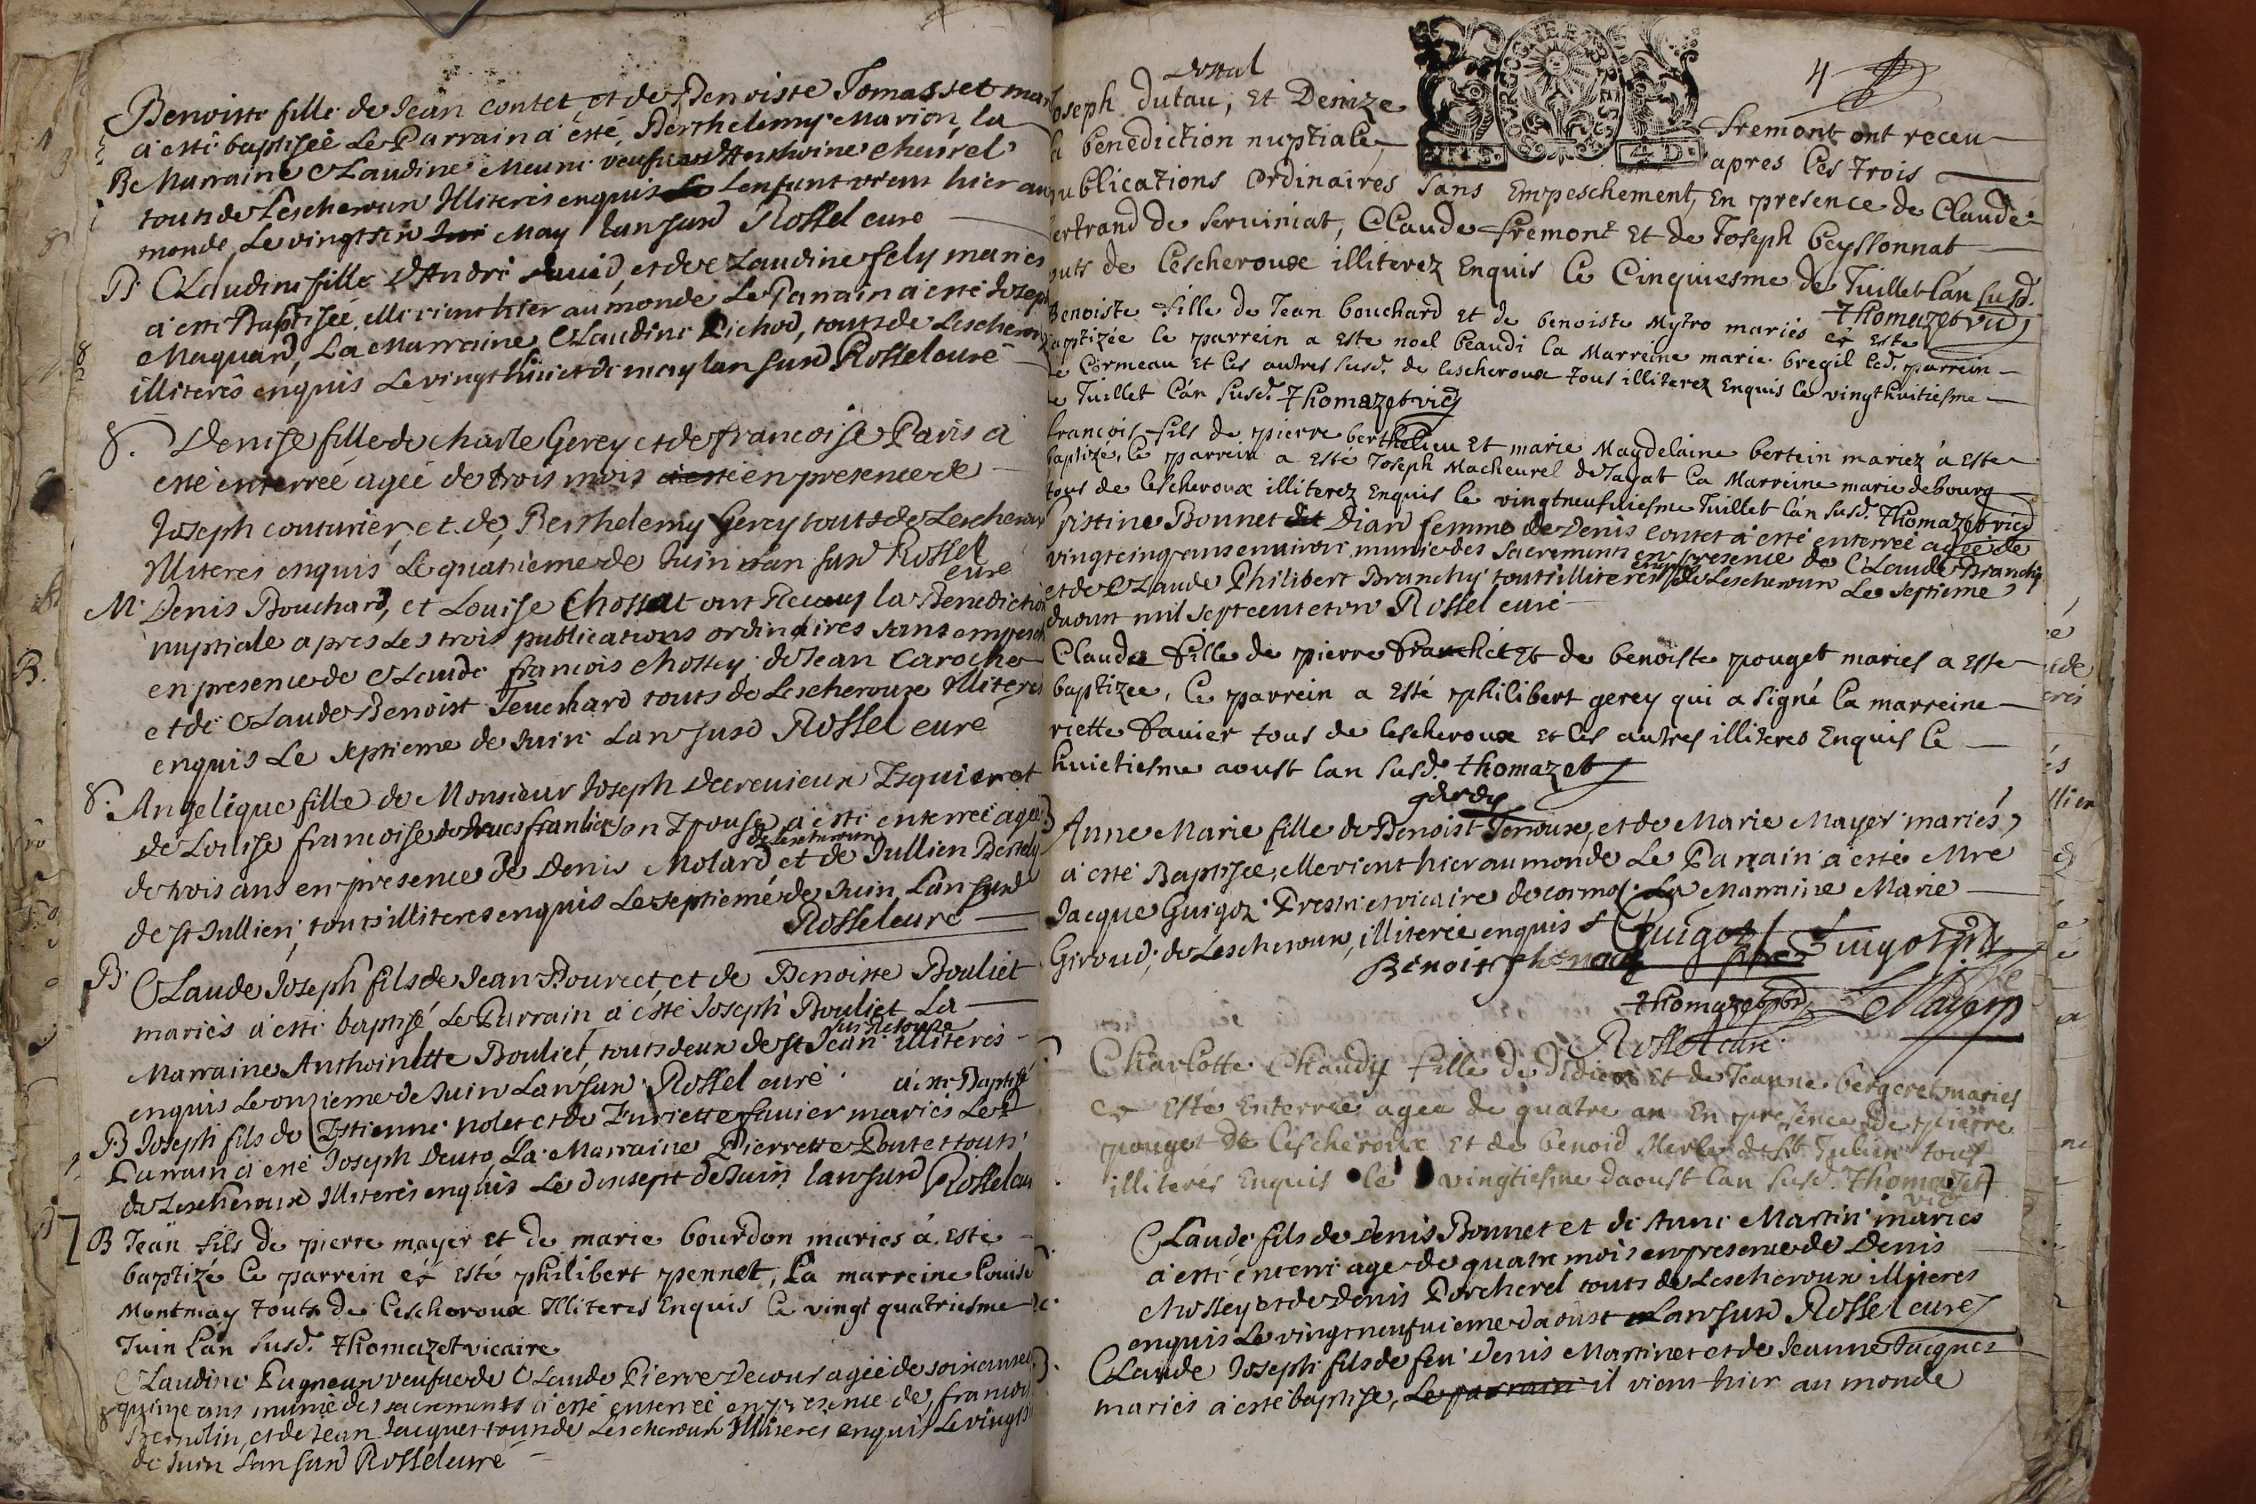 Benoiste fille de Jean Contet, et de Benoiste Tomasset mari
a esté baptisée Le Parrain a esté Berthelemy Marion, la
B Marraine Claudine Meuni veufue d'Anthoine cheurel
touts de Lescheroux Illiteres enquis Lenfunt vient hier au
monde, Le vingt six May Lan susd Rossel curé
B Claudine fille D'André Dauid, et de Claudine fely mariés
a esté Baptisée, elle vient hier au monde Le Parrain a esté Joseph
Maquard, La Marraine Claudine Pichod, touts de Lescheroux
illiterés enquis Le vingt huict de may lan susd Rossel curé
S. Denise fille de Charle Gerey et de francoise Paris a
esté enterrée agée de trois mois a esté en presence de
Joseph couturier, et de, Berthelemy Gerey touts de Lescheroux
Illiteres enquis Le quatrieme de Juin Lan susd Rossel
curé
M. Denis Bouchard, et Louise Chossat ont Receus la Benediction
nuptiale apres Les trois publications ordinaires sans empesch
en presence de Claude francois chossey de Jean Caroche
et de Claude Benoist Teuchard touts de Lescheroux Illiteres
enquis Le septieme de Juin Lan susd Rossel curé
S. Angelique fille de Monsieur Joseph Decreuieux Esquier et
de Louise francoise de Son Epouse, a esté enterreé ageé
de Lescheroux
de trois ans en presence de Denis Molard et de Jullien
de st Jullien, touts illiteres enquis Le septieme de Juin Lan susd
Rossel curé
B Claude Joseph fils de Jean Bourcet, et de Benoiste Bouliet
mariés a esté baptisé Le Parrain a esté Joseph Bouliet La
sur Ressouze
Marraine Anthoinette Bouliet, touts deux de st Jean illiterés
enquis Le onzieme de Juin Lan susd Rossel curé a esté Baptisé
B Joseph fils de Estienne nolet et de Enriette fauier mariés Le
Parrain a esté Joseph Deuto La Marraine Pierrette Pontet touts
de Lescheroux Illiteres enquis Le dix sept de Juin lan susd Rossel cu
B Jean fils de pierre mayer et de marie bourdon mariés a esté
baptizé le parrein a esté philibert pennet, la marreine louise
Montmay touts de lescheroux Illiteres Enquis le vingt quatriesme
Juin lan susd. thomazet vicaire
Claudine Pugneux veufue de Claude Pierre Decour ageé de soixante
S quinze ans munie des sacrements a esté enterreé en presence de, francois
et de Jean Jacquet touts de Lescheroux Illiteres enquis Le vingt
de Juin Lan susd Rossel curé
4
dostal
Joseph dutau, et Denize fremont ont receu
la benediction nuptiale, apres les trois
publications ordinaires sans Empeschement, En presence de Claude
bertrand de seruiniat, Claude fremont et de Joseph beyssonnat
touts de lescheroux illiterez Enquis le Cinquiesme de Juillet lan susd.
Thomazet vic
Benoiste fille de Jean bouchard et de benoiste Mytro mariés a esté
baptizée le parrein a esté noel beaudi la Marreine marie bregil led. parrein
de Cormeau et les autres susd. de lescheroux tous illiterez Enquis le vingthuitiesme
de Juillet lan susd. Thomazet vic
francois fils de pierre berthelieu et marie Magdelaine bertein mariez a esté
baptize, le parrein a esté Joseph Macheurel de Jayat la Marreine marie debourg
tous de lescheroux illiterez Enquis le vingtneufuiesme Juillet lan susd. Thomazet vic
Cristine Bonnet dit Diard femme de Denis Contet a esté enterreé agée de
vingt cinq ans enuiron munie des sacrements en presence de Claude Branchy
et de Claude Philibert Branchy touts illiteres enquis de Lescheroux Le septieme
daoust mil sept cent et un Rossel curé
Clauda fille de pierre franchet et de benoiste pouget mariés a esté
baptizee, le parrein a esté philibert gerey qui a signé la marreine
riette fauier tous de lescheroux et les autres illiteres Enquis le
huictiesme aoust lan susd. thomazet
gerey
Anne Marie fille de Benoist Tenoux, et de Marie Mayer mariés,
a esté Baptisee, elle vient hier au monde Le Parrain a esté Mre
Jacque Guigoz Prestre et vicaire de cormoz La Marraine Marie
Giroud, de Lescheroux, illiterée enquis Guigoz
Benoist
thomazet pbr Mayer
Rossel curé
Charlotte Chaudy fille de Didier et de Jeanne bergeret mariés
a esté Enterree agee de quatre an En presence De pierre
pouget de lescheroux et de benoid Merle de St Julien tous
illiterés Enquis le vingtiesme daoust lan susd. Thomazet
vic
Claude fils de Denis Bonnet et de Anne Martin mariés
a esté enterré age de quatre mois en presence de Denis
chossey et de Denis Porcherel touts de Lescheroux illiteres
enquis Le vingt neufuieme daoust Lan susd Rossel curé
Claude Joseph fils de feu Denis Martinet et de Jeanne Jacquet
mariés a esté baptisé, Le parrain il vient hier au monde